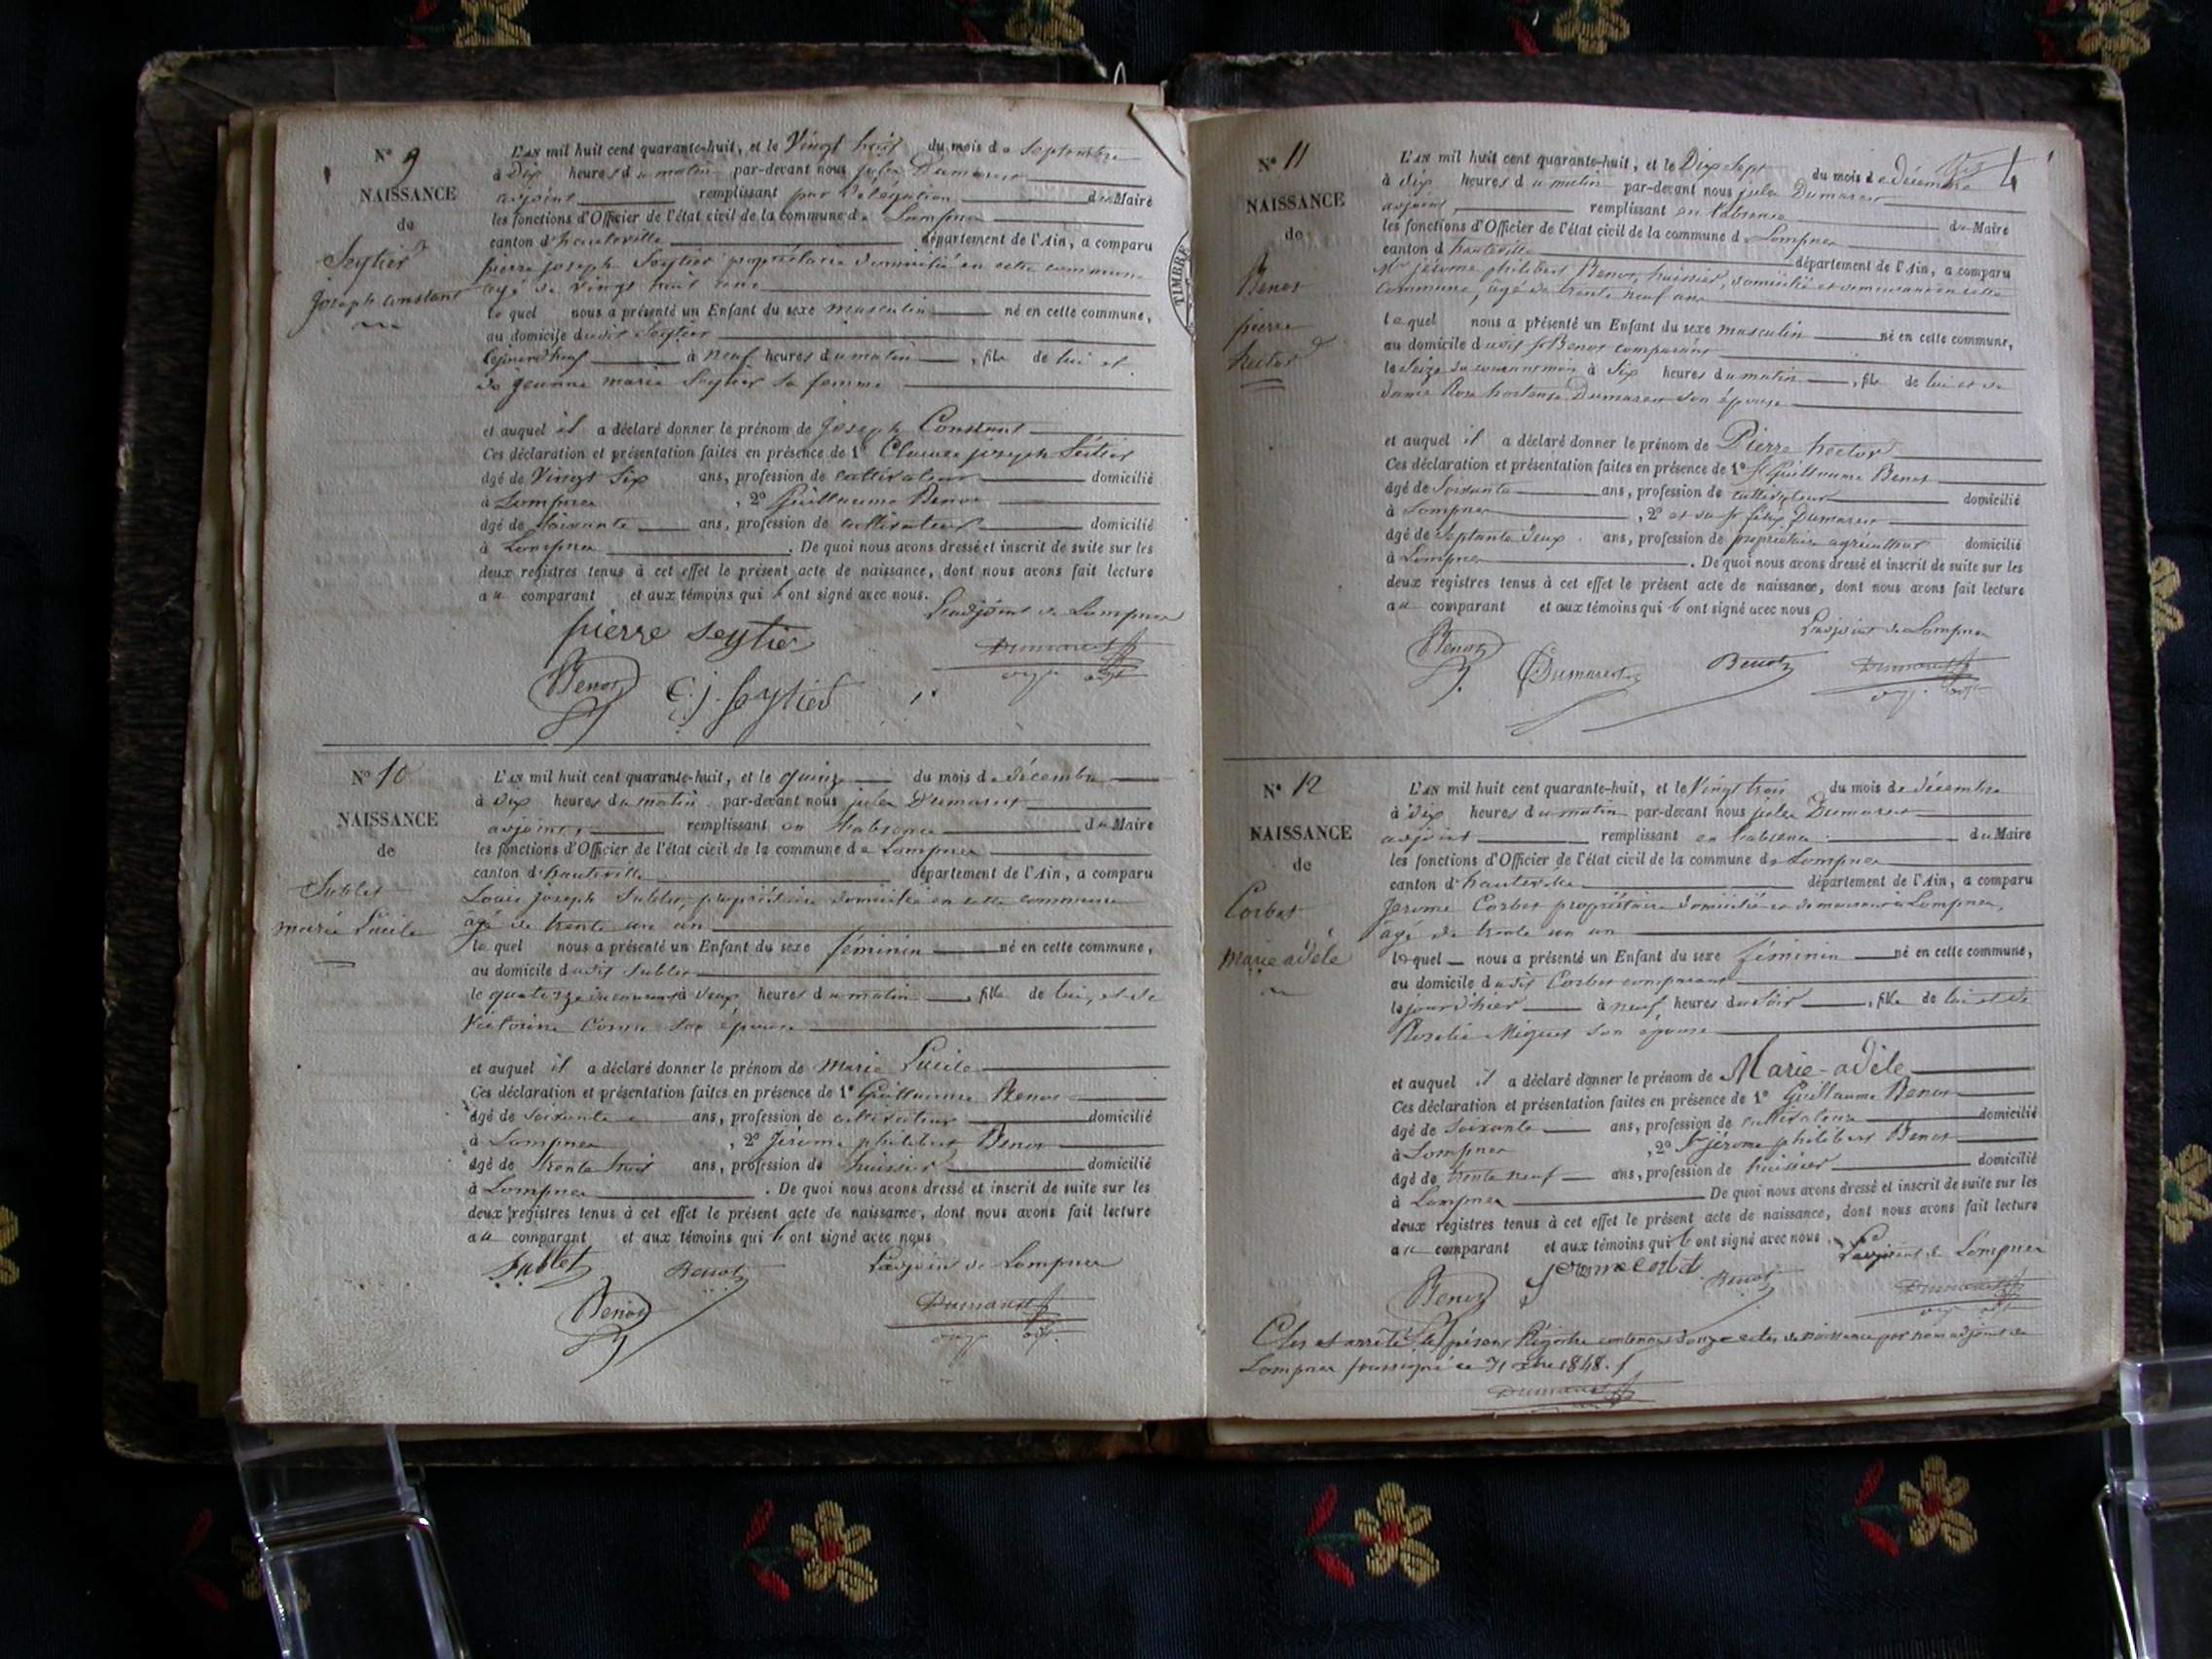 N° 9
NAISSANCE
de
Seytier
joseph constant
L'AN mil huit cent quarante-huit, et le Vingt huit du mois de septembre
à Dix heures du matin par-devant nous jules Dumarest
adjoint remplissant par délégation du Maire
les fonctions d'Officier de l'état civil de la commune de Lompnes
canton d'hauteville département de l'Ain, a comparu
pierre joseph Seytier propriétaire domicilié en cette commune
agé de vingt huit ans
le quel nous a présenté un Enfant du sexe masculin né en cette commune,
au domicile dudit Seytier
cejourd'huy à neuf heures du matin, fils de lui et
de jeanne marie Seytier sa femme
et auquel il a déclaré donner le prénom de Joseph Constant
Ces déclaration et présentation faites en présence de 1° Claude joseph Seitier
âgé de Vingt Six ans, profession de cultivateur domicilié
à Lompnes, 2° Guillaume Benot
âgé de soixante ans, profession de cultivateur domicilié
à Lompnes. De quoi nous avons dressé et inscrit de suite sur les
deux registres tenus à cet effet le présent acte de naissance, dont nous avons fait lecture
au comparant et aux témoins qui ont signé avec nous.
L'adjoint de Lompnes
pierre seytier
Dumarest
Benot C. j. Seytier
N° 10
NAISSANCE
de
Sublet
marie Lucile
L'AN mil huit cent quarante-huit, et le quinze du mois de décembre
à dix heures du matin par-devant nous jules Dumarest
adjoint, remplissant en l'absence du Maire
les fonctions d'Officier de l'état civil de la commune de Lompnes
canton d'hauteville département de l'Ain, a comparu
Louis joseph Sublet, propriétaire domicilié en cette commune
âgé de trente un an
le quel nous a présenté un Enfant du sexe féminin né en cette commune,
au domicile dudit Sublet
le quatorze du courant à deux heures du matin, fille de lui, et de
Victorine son épouse
et auquel il a déclaré donner le prénom de Marie Lucile
Ces déclaration et présentation faites en présence de 1° Guillaume Benot
âgé de soixante ans, profession de cultivateur domicilié
à Lompnes, 2° Jérome philibert Benot
âgé de trente huit ans, profession de huissier domicilié
à Lompnes. De quoi nous avons dressé et inscrit de suite sur les
deux registres tenus à cet effet le présent acte de naissance, dont nous avons fait lecture
au comparant et aux témoins qui ont signé avec nous
Sublet Benot L'adjoint de Lompnes
Benot Dumarest
TIMBRE
N° 11
NAISSANCE
de
Benot
pierre
hector
L'AN mil huit cent quarante-huit, et le Dix Sept du mois de décembre
à dix heures du matin par-devant nous jules Dumarest
adjoint remplissant en l'absence du Maire
les fonctions d'Officier de l'état civil de la commune de Lompnes
canton d'hauteville département de l'Ain, a comparu
Mr jérome philibert Benot, huissier, domicilié et demeurant en cette
commune, âgé de trente neuf ans
le quel nous a présenté un Enfant du sexe masculin né en cette commune,
au domicile dudit Sr Benot comparant
le Seize du courant mois à Six heures du matin, fils de lui et de
dame Rose hortense Dumarest son épouse
et auquel il a déclaré donner le prénom de Pierre hector
Ces déclaration et présentation faites en présence de 1° Sr Guillaume Benot
âgé de Soixante ans, profession de cultivateur domicilié
à Lompnes, 2° et du Sr félix Dumarest
âgé de Septante deux ans, profession de propriétaire agriculteur domicilié
à Lompnes. De quoi nous avons dressé et inscrit de suite sur les
deux registres tenus à cet effet le présent acte de naissance, dont nous avons fait lecture
au comparant et aux témoins qui ont signé avec nous
L'adjoint de Lompnes
Benot Dumarest Benot Dumarest
N° 12
NAISSANCE
de
Corbet
Marie adèle
L'AN mil huit cent quarante-huit, et le Vingt trois du mois de décembre
à dix heures du matin par-devant nous jules Dumarest
adjoint remplissant en l'absence du Maire
les fonctions d'Officier de l'état civil de la commune de Lompnes
canton d'hauteville département de l'Ain, a comparu
Jerome Corbet propriétaire domicilié et demeurant à Lompnes,
âgé de trente un an
le quel nous a présenté un Enfant du sexe féminin né en cette commune,
au domicile dudit Corbet comparant
le jour d'hier à neuf heures du soir, fille de lui et de
Rosalie Miguet son épouse
et auquel il a déclaré donner le prénom de Marie-adèle
Ces déclaration et présentation faites en présence de 1° Guillaume Benot
âgé de soixante ans, profession de cultivateur domicilié
à Lompnes, 2° Sr jérome philibert Benot
âgé de trente neuf ans, profession de huissier domicilié
à Lompnes De quoi nous avons dressé et inscrit de suite sur les
deux registres tenus à cet effet le présent acte de naissance, dont nous avons fait lecture
au comparant et aux témoins qui ont signé avec nous.
L'adjoint de Lompnes
Benot Jerome Corbet Benot Dumarest
Clos et arrêté le présent Régistre contenant douze actes de naissance par nous adjoint de
Lompnes soussigné ce 31 xbre 1848.
Dumarest